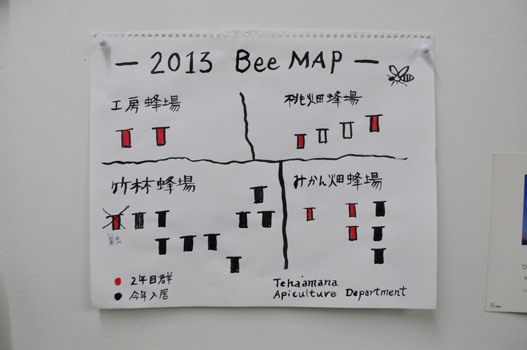 — 2013 Bee MAP —
工房蜂場
桃畑蜂場
竹林蜂場
みかん畑蜂場
2年目群
今年入居
Tehaamana
Apiculture Department